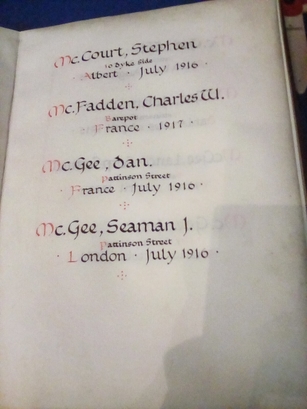 Mc.Court, Stephen
10 Dyke Side
Albert · July 1916 ·
Mc.Fadden, Charles W.
Barepot
France · 1917 ·
Mc.Gee, Dan.
Pattinson Street
· France · July 1916 ·
Mc.Gee, Seaman J.
Pattinson Street
· London · July 1916 ·